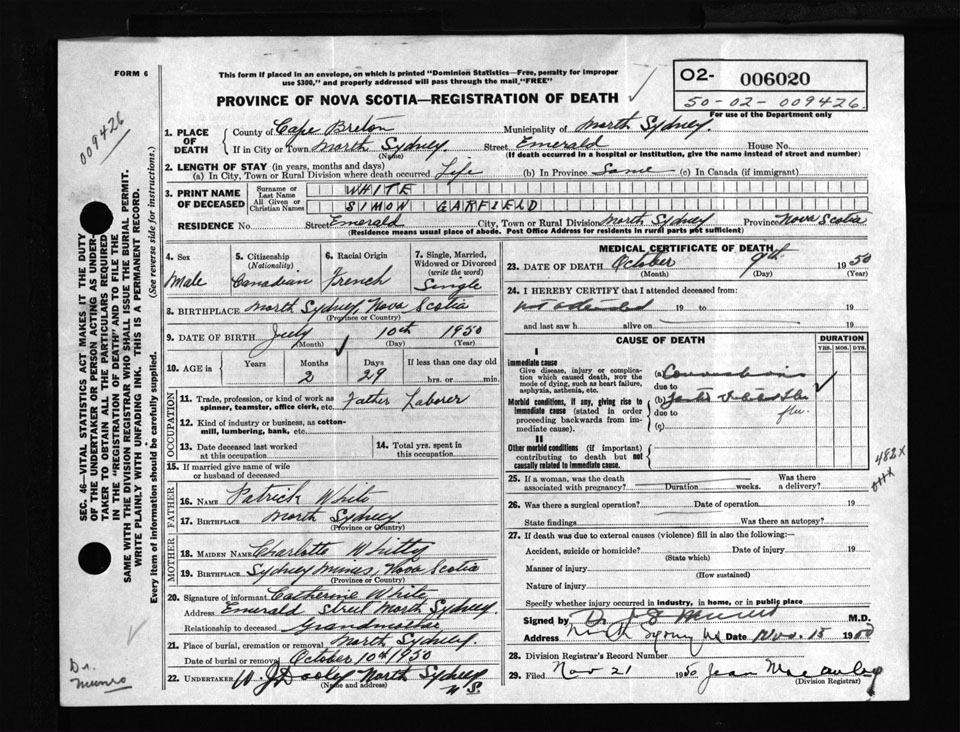 FORM 6
This form if placed in an envelope, on which is printed "Dominion Statistics—Free, penalty for improper
use $300," and properly addressed will pass through the mail, "FREE"
O2- 006020
50-02-009426
For use of the Department only
009426
PROVINCE OF NOVA SCOTIA—REGISTRATION OF DEATH
1. PLACE OF DEATH
County of Cape Breton Municipality of North Sydney.
If in City or Town North Sydney Street Emerald House No.
(Name) (If death occurred in a hospital or institution, give the name instead of street and number)
2. LENGTH OF STAY (in years, months and days)
(a) In City, Town or Rural Division where death occurred Life (b) In Province Same (c) In Canada (if immigrant)
3. PRINT NAME OF DECEASED
Surname or Last Name WHITE
All Given or Christian Names SIMON GARFIELD
RESIDENCE No. Street Emerald City, Town or Rural Division North Sydney Province Nova Scotia
(Residence means usual place of abode. Post Office Address for residents in rural parts not sufficient)
SEC. 46—VITAL STATISTICS ACT MAKES IT THE DUTY
OF THE UNDERTAKER OR PERSON ACTING AS UNDER-
TAKER TO OBTAIN ALL THE PARTICULARS REQUIRED
IN THE "REGISTRATION OF DEATH" AND TO FILE THE
SAME WITH THE DIVISION REGISTRAR WHO SHALL ISSUE THE BURIAL PERMIT.
WRITE PLAINLY WITH UNFADING INK. THIS IS A PERMANENT RECORD.
Every item of information should be carefully supplied. (See reverse side for instructions.)
4. Sex
Male
5. Citizenship
(Nationality)
Canadian
6. Racial Origin
French
7. Single, Married,
Widowed or Divorced
(write the word)
Single
8. BIRTHPLACE North Sydney, Nova Scotia
(Province or Country)
9. DATE OF BIRTH July 10th 1950
(Month) (Day) (Year)
10. AGE in Years Months Days If less than one day old
2 29 hrs. or min.
OCCUPATION
11. Trade, profession, or kind of work as
spinner, teamster, office clerk, etc. Father Laborer
12. Kind of industry or business, as cotton-
mill, lumbering, bank, etc.
13. Date deceased last worked
at this occupation
14. Total yrs. spent in
this occupation
15. If married give name of wife
or husband of deceased
FATHER
16. NAME Patrick White
17. BIRTHPLACE North Sydney
(Province or Country)
MOTHER
18. MAIDEN NAME Charlotte Whitty
19. BIRTHPLACE Sydney Mines, Nova Scotia
(Province or Country)
20. Signature of informant Catherine White
Address Emerald Street North Sydney.
Relationship to deceased Grandmother
21. Place of burial, cremation or removal North Sydney.
Date of burial or removal October 10th 1950
22. UNDERTAKER W. J. Dooley North Sydney
(Name and address) N S.
Dr.
Munro
MEDICAL CERTIFICATE OF DEATH
23. DATE OF DEATH October 9th 1950
(Month) (Day) (Year)
24. I HEREBY CERTIFY that I attended deceased from:
not attended 19 to 19
and last saw h alive on 19
CAUSE OF DEATH
DURATION
YRS. MOS. DYS.
I
Immediate cause
Give disease, injury or complica-
tion which caused death, not the
mode of dying, such as heart failure,
asphyxia, asthenia, etc.
(a) Convulsions
due to
Morbid conditions, if any, giving rise to
immediate cause (stated in order
proceeding backwards from im-
mediate cause).
(b)
due to flu.
(c)
II
Other morbid conditions (if important)
contributing to death but not
causally related to immediate cause.
482X
25. If a woman, was the death
associated with pregnancy? Duration weeks. Was there
a delivery?
26. Was there a surgical operation? Date of operation 19
State findings Was there an autopsy?
27. If death was due to external causes (violence) fill in also the following:—
Accident, suicide or homicide? Date of injury 19
(State which)
Manner of injury
(How sustained)
Nature of injury
Specify whether injury occurred in industry, in home, or in public place
Signed by Dr. M.D.
Address North Sydney NS Date Nov. 15 1950
28. Division Registrar's Record Number
29. Filed Nov 21 1950 Jean
(Division Registrar)